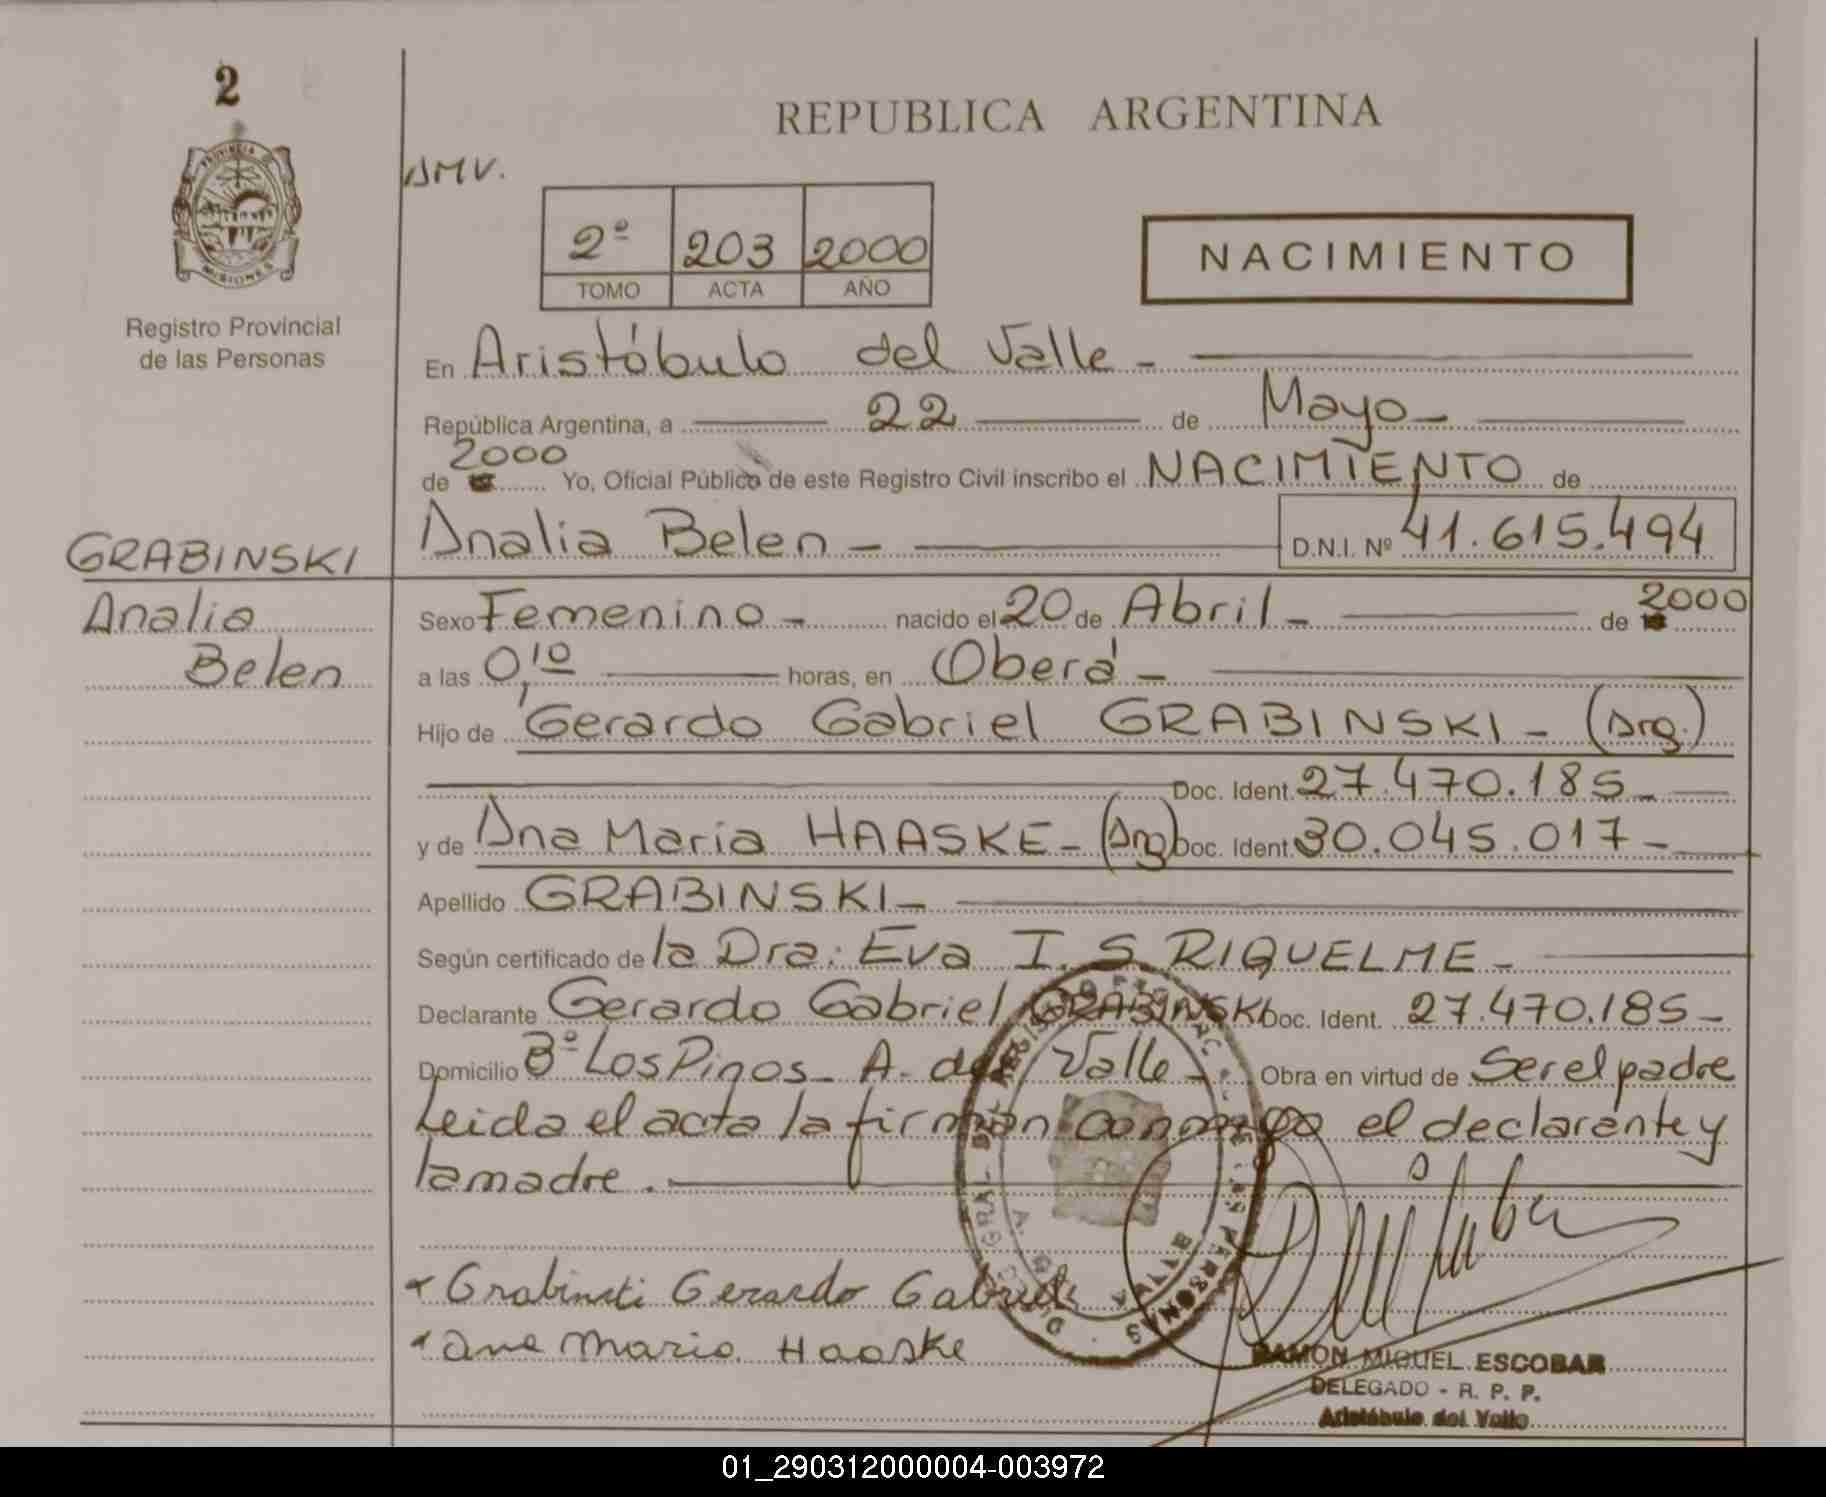 2
PROVINCIA DE
MISIONES
Registro Provincial
de las Personas
GRABINSKI
Analia
Belen
REPUBLICA ARGENTINA
AMV.
2º 203 2000
TOMO ACTA AÑO
NACIMIENTO
En Aristóbulo del Valle -
República Argentina, a 22 de Mayo -
de 2000 Yo, Oficial Público de este Registro Civil inscribo el NACIMIENTO de
Analia Belen - D.N.I. Nº 41.615.494
Sexo Femenino - nacido el 20 de Abril - de 2000
a las 0,10 horas, en Oberá -
Hijo de Gerardo Gabriel GRABINSKI - (Arg.)
Doc. Ident. 27.470.185 -
y de Ana Maria HAASKE - (Arg) Doc. Ident. 30.045.017 -
Apellido GRABINSKI -
Según certificado de la Dra: Eva I. S RIQUELME -
Declarante Gerardo Gabriel GRABINSKI Doc. Ident. 27.470.185 -
Domicilio Bº Los Pinos - A. del Valle - Obra en virtud de Ser el padre
Leida el acta la firman conmigo el declarante y
la madre.
Grabinski Gerardo Gabriel
Ana Maria Haaske
RAMON MIGUEL ESCOBAR
DELEGADO - R. P. P.
Aristóbulo del Valle
01_290312000004-003972